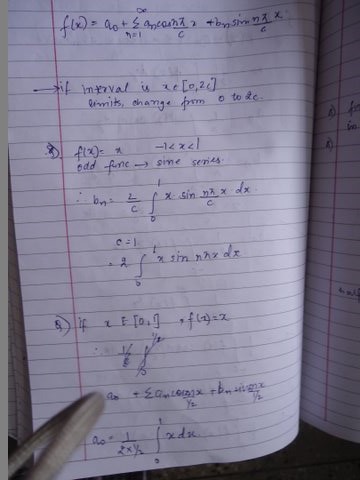 f(x) = a₀ + ∞Σn=1 aₙ cos nπ/c x + bₙ sin nπ/c x
→ if interval is x ∈ [0, 2c]
limits, change from 0 to 2c.
Q) f(x) = x -1 < x < 1
odd func → sine series.
∴ bₙ = 2/c ∫₀¹ x sin nπ/c x dx
c = 1
= 2 ∫₀¹ x sin nπx dx
Q) if x E [0,1] , f(x) = x
a₀ + Σ aₙ cos nπx/1/2 + bₙ sin nπx/1/2
a₀ = 1/2×1/2 ∫₀¹ x dx.